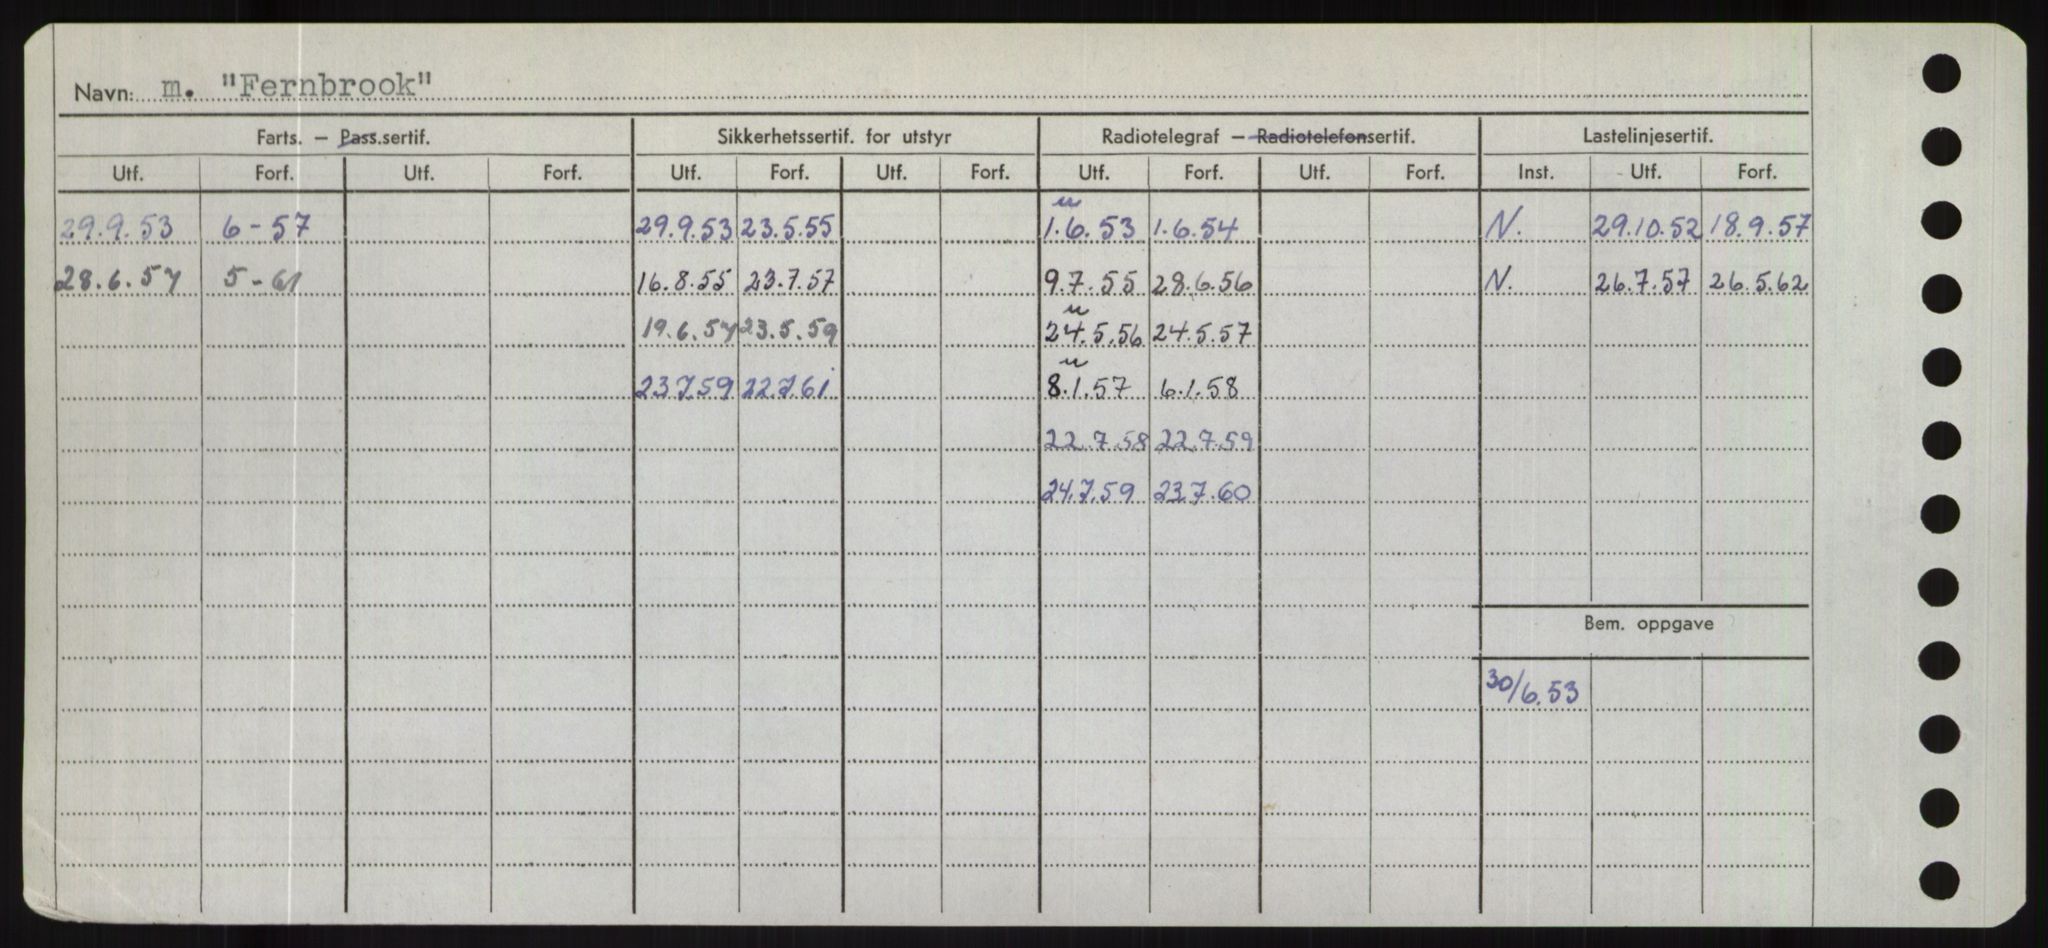 Navn: m. "Fernbrook"
Farts. — Pass.sertif. Sikkerhetssertif. for utstyr Radiotelegraf — Radiotelefonsertif. Lastelinjesertif.
Utf. Forf. Utf. Forf. Utf. Forf. Utf. Forf. Utf. Forf. Utf. Forf. Inst. Utf. Forf.
u
29.9.53 6-57 29.9.53 23.5.55 1.6.53 1.6.54 N. 29.10.52 18.9.57
28.6.57 5-61 16.8.55 23.7.57 9.7.55 28.6.56 N. 26.7.57 26.5.62
u
19.6.57 23.5.59 24.5.56 24.5.57
u
23.7.59 22.7.61 8.1.57 6.1.58
22.7.58 22.7.59
24.7.59 23.7.60
Bem. oppgave
30/6.53